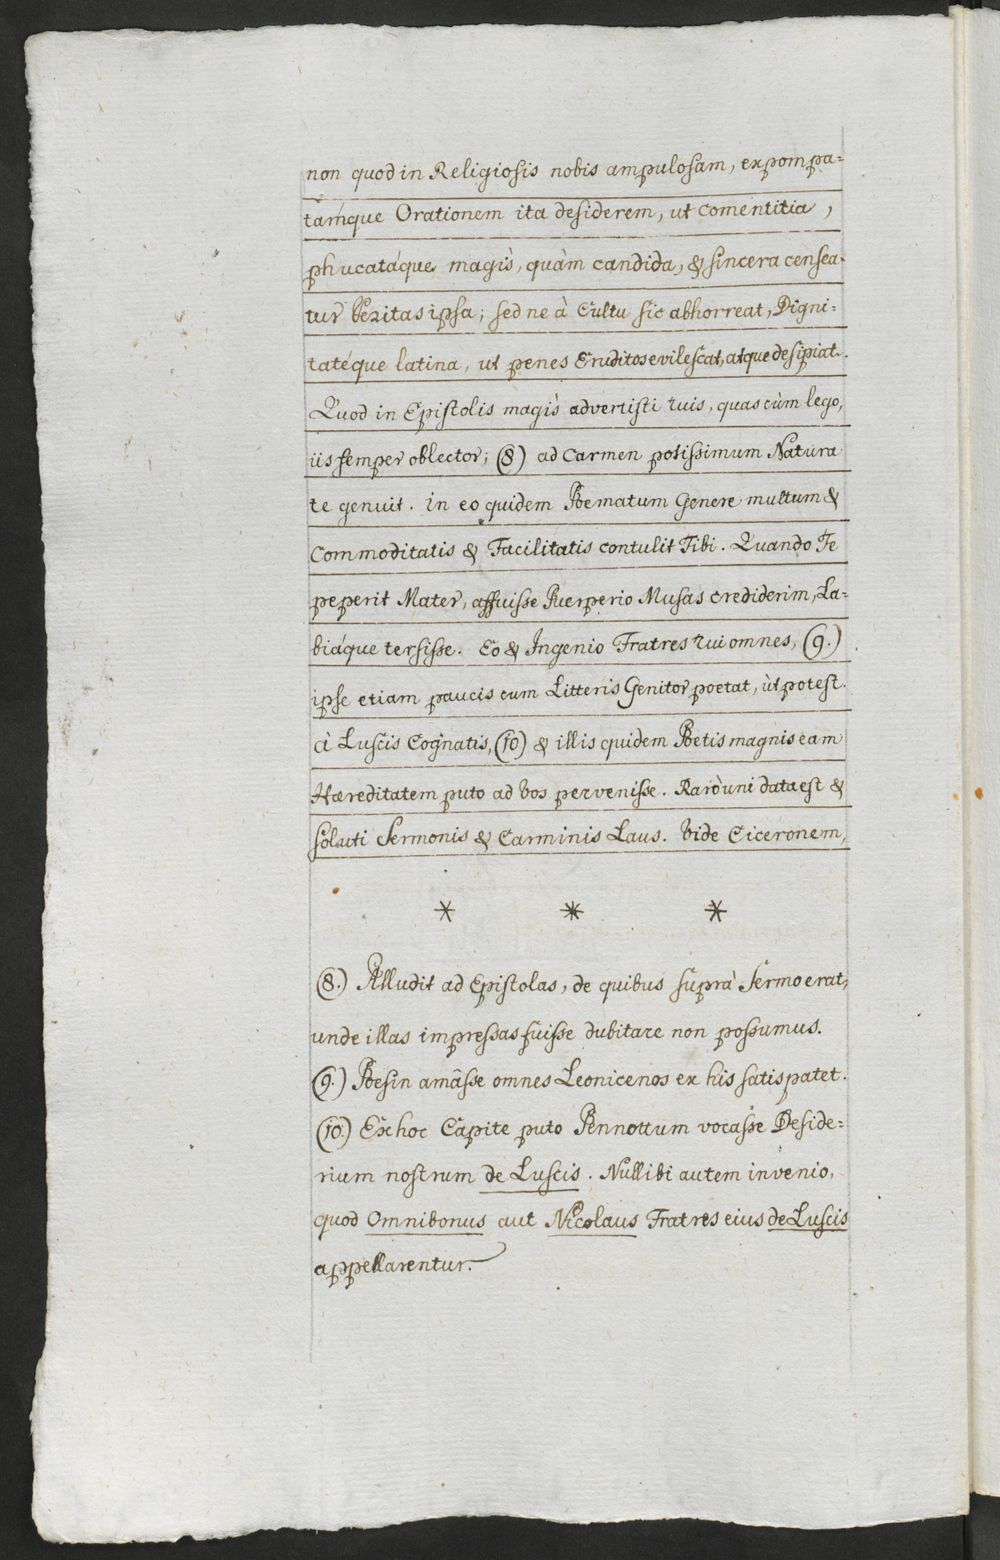 non quod in Religiosis nobis ampulosam, expompa=
támque Orationem ita desiderem, ut comentitia,
phucatáque magis, quàm candida, & sincera censea-
tur Veritas ipsa; sed ne à Cultu sic abhorreat, Digni=
tatéque latina, ut penes Eruditos evilescat, atque desipiat.
Quod in Epistolis magis advertisti tuis, quas cùm lego,
iis semper oblector; (8) ad Carmen potissimum Natura
te genuit. in eo quidem Poematum Genere multum &
Commoditatis & Facilitatis contulit Tibi. Quando Te
peperit Mater, affuisse Puerperio Musas crediderim, La=
biáque tersisse. Eo & Ingenio Fratres tui omnes, (9.)
ipse etiam paucis cum Litteris Genitor poetat, ùt potest.
à Luscis Cognatis, (10) & illis quidem Poetis magnis eam
Hæreditatem puto ad Vos pervenisse. Rarò uni data est &
soluti Sermonis & Carminis Laus. Vide Ciceronem,
* * *
(8.) Alludit ad Epistolas, de quibus suprà Sermo erat,
unde illas impressas fuisse dubitare non possumus.
(9.) Poesin amâsse omnes Leonicenos ex his satis patet.
(10.) Ex hoc Capite puto Pennottum vocasse Deside=
rium nostrum de Luscis. Nullibi autem invenio,
quod Omnibonus aut Nicolaus Fratres eius de Luscis
appellarentur.